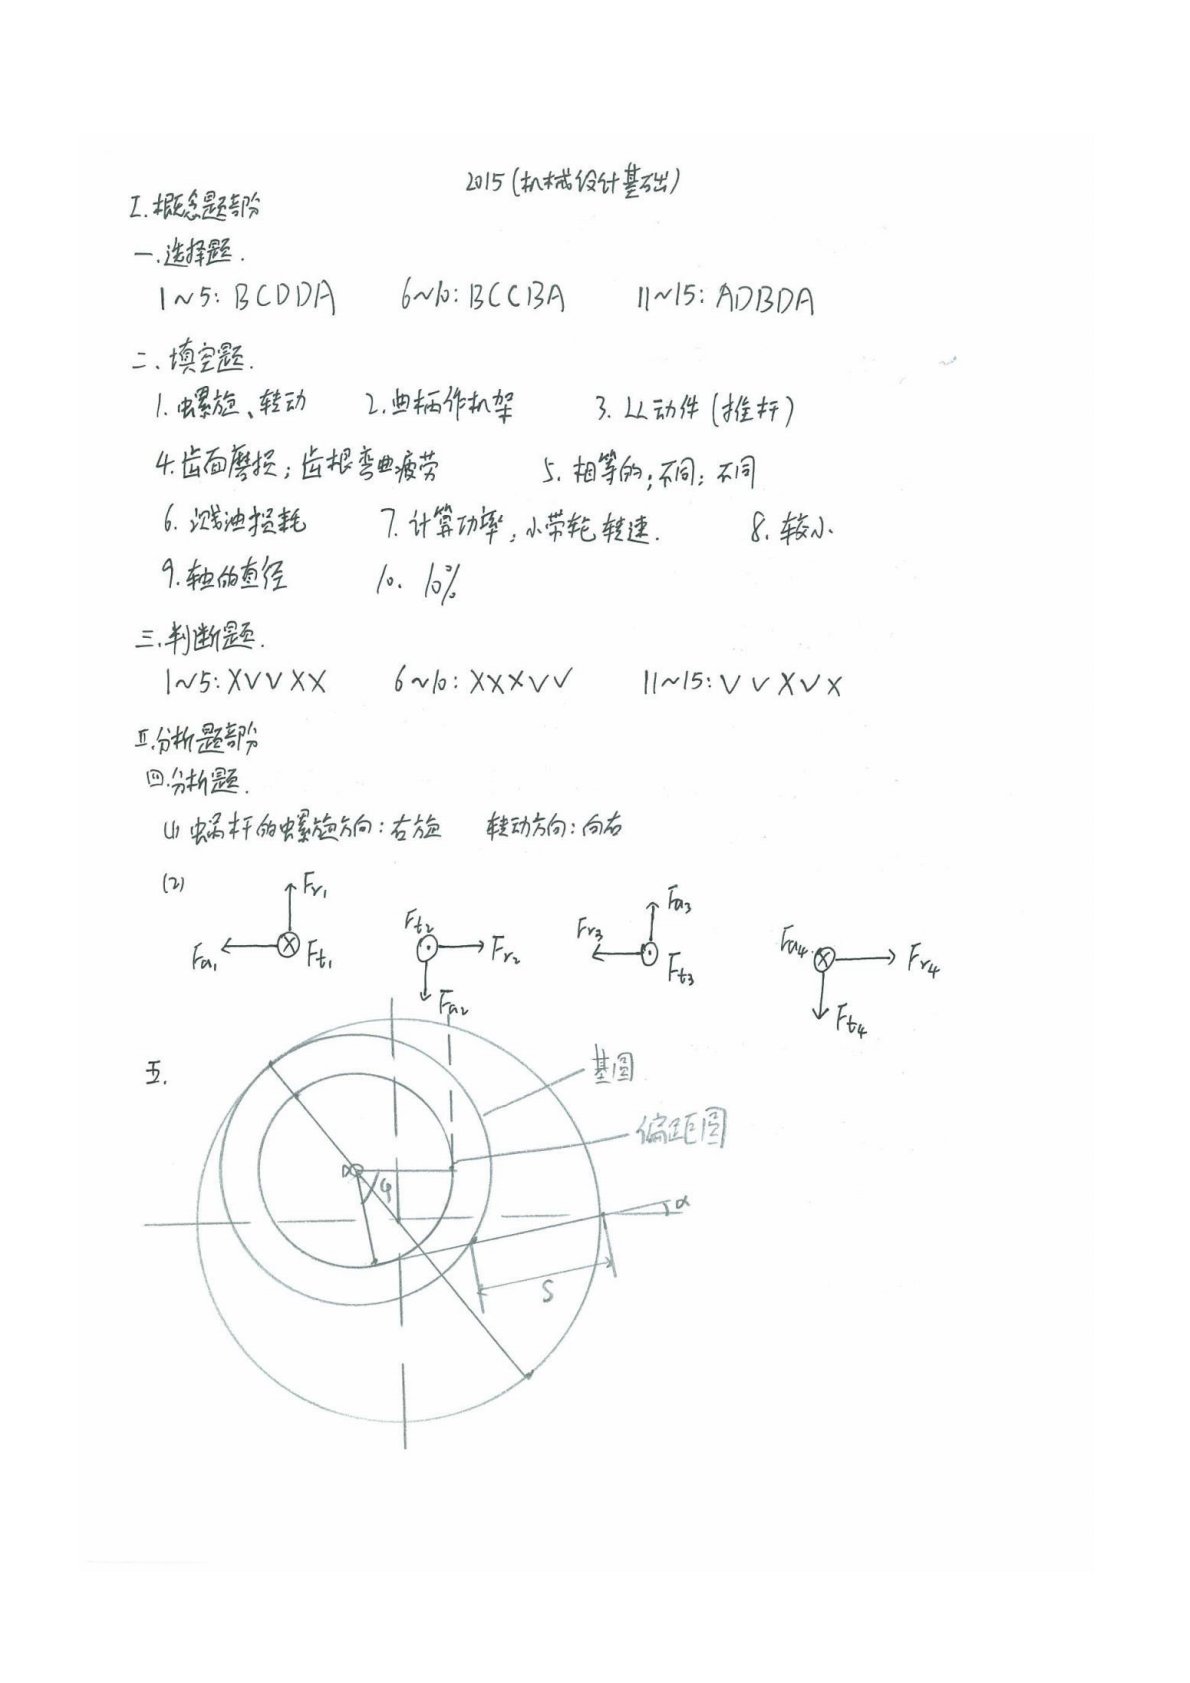 2015(机械设计基础)
I.概念题部分
一.选择题.
1~5: BCDDA 6~10: BCCBA 11~15: ADBDA
二、填空题.
1. 螺旋、转动 2.曲柄作机架 3. 从动件(推杆)
4.齿面磨损; 齿根弯曲疲劳 5. 相等的;不同;不同
6. 溅油损耗 7.计算功率,小带轮转速. 8. 较小
9.轴的直径 10. 10%
三.判断题.
1~5: X√√XX 6~10: XXX√√ 11~15: √√X√X
II.分析题部分
四.分析题.
(1) 蜗杆的螺旋方向:右旋 转动方向:向右
(2)
Fr1 Fa1 Ft1
Ft2 Fr2 Fa2
Fa3 Fr3 Ft3
Fa4 Fr4 Ft4
五.
基圆
偏距圆
φ
α
S